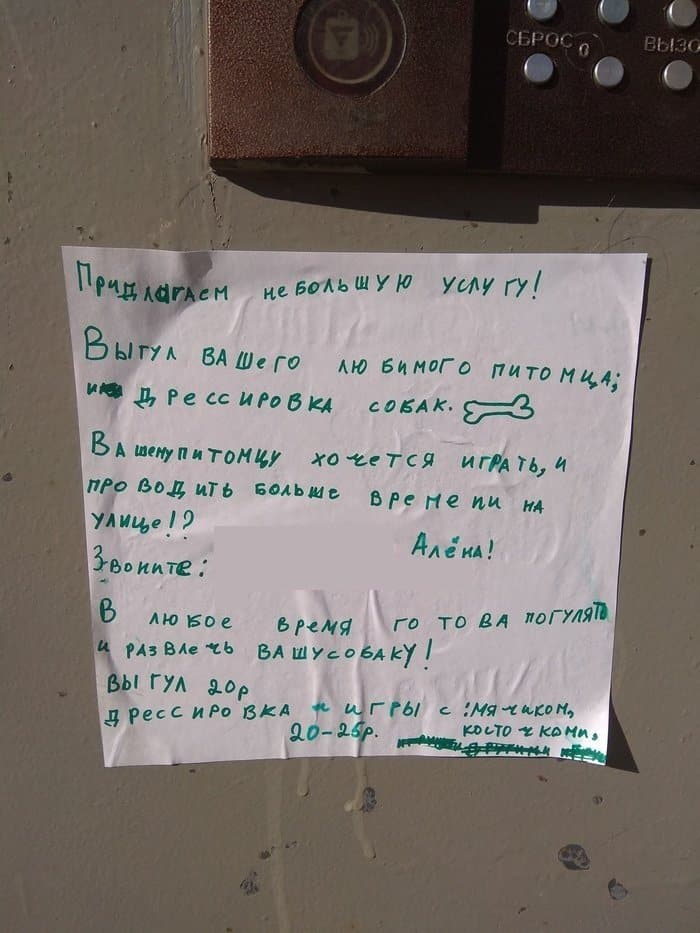 СБРОС 0 ВЫЗО
Придлагаем небольшую услугу!
Выгул вашего любимого питомца;
дрессировка собак.
Вашему питомцу хочется играть, и
проводить больше времени на
улице!?
Алёна!
Звоните:
В любое время готова погулять
и развлечь вашу собаку!
Выгул 20р
дрессировка и игры с :мячиком,
20-25р. косточками,